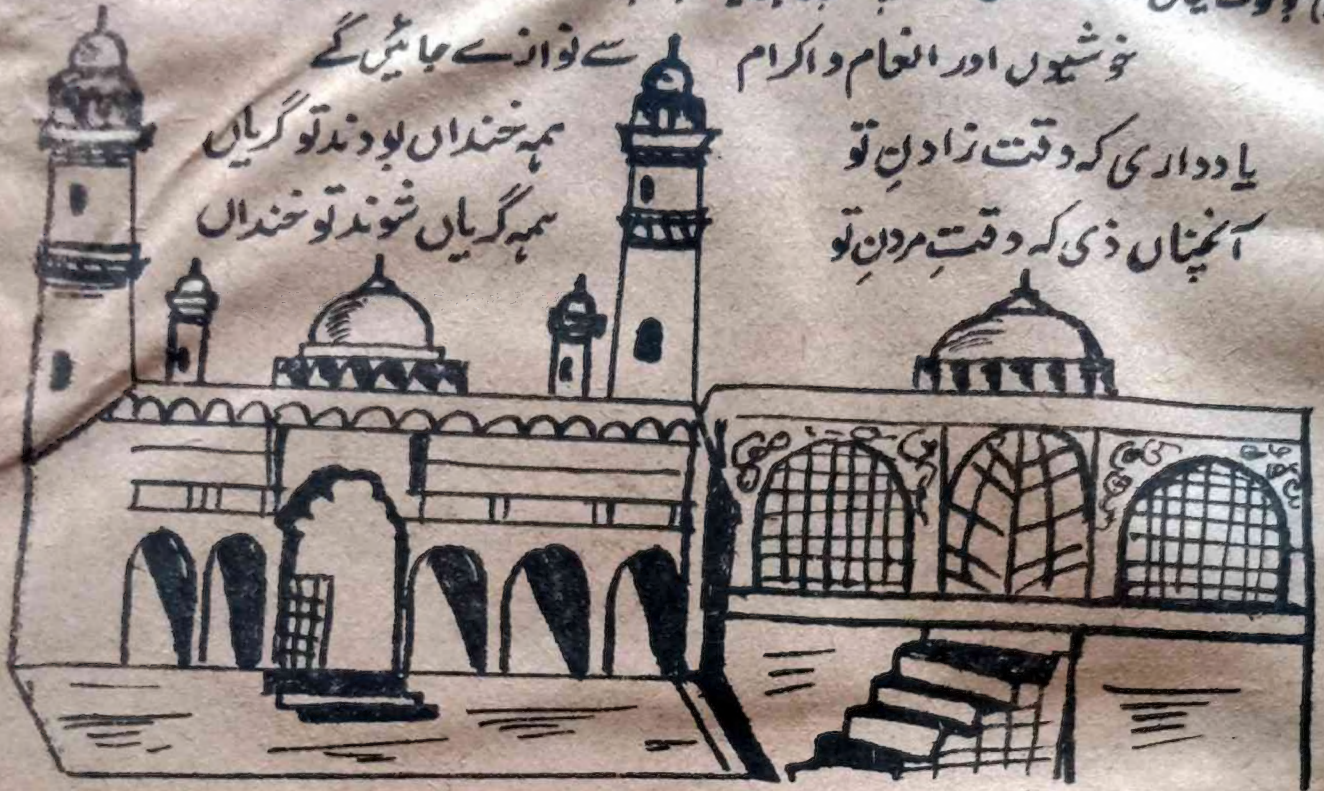 خوشیوں اور انعام و اکرام سے نوازے جائیں گے
یاد داری کہ وقت زادنِ تو ہمہ خنداں بودند تو گریاں
آنچناں ذی کہ وقتِ مردنِ تو ہمہ گریاں شوند تو خنداں